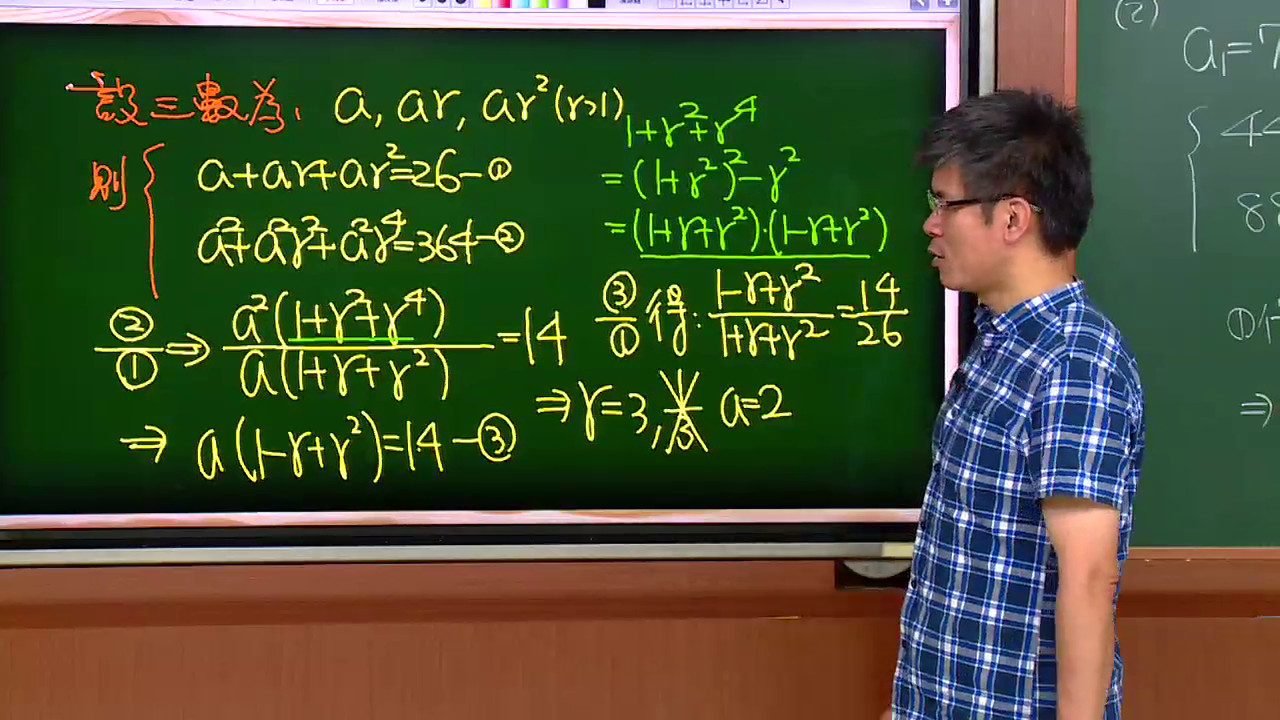 設三數為: a, ar, ar²(r>1)
則 { a+ar+ar²=26—①
a²+a²r²+a²r⁴=364—②
②/① ⇒ a²(1+r²+r⁴)/a(1+r+r²) =14
⇒ a(1-r+r²)=14—③
1+r²+r⁴
=(1+r²)²-r²
=(1+r+r²)·(1-r+r²)
③/① 得: 1-r+r²/1+r+r² = 14/26
⇒r=3, a=2
(2)
a₁=7
{ 44
88